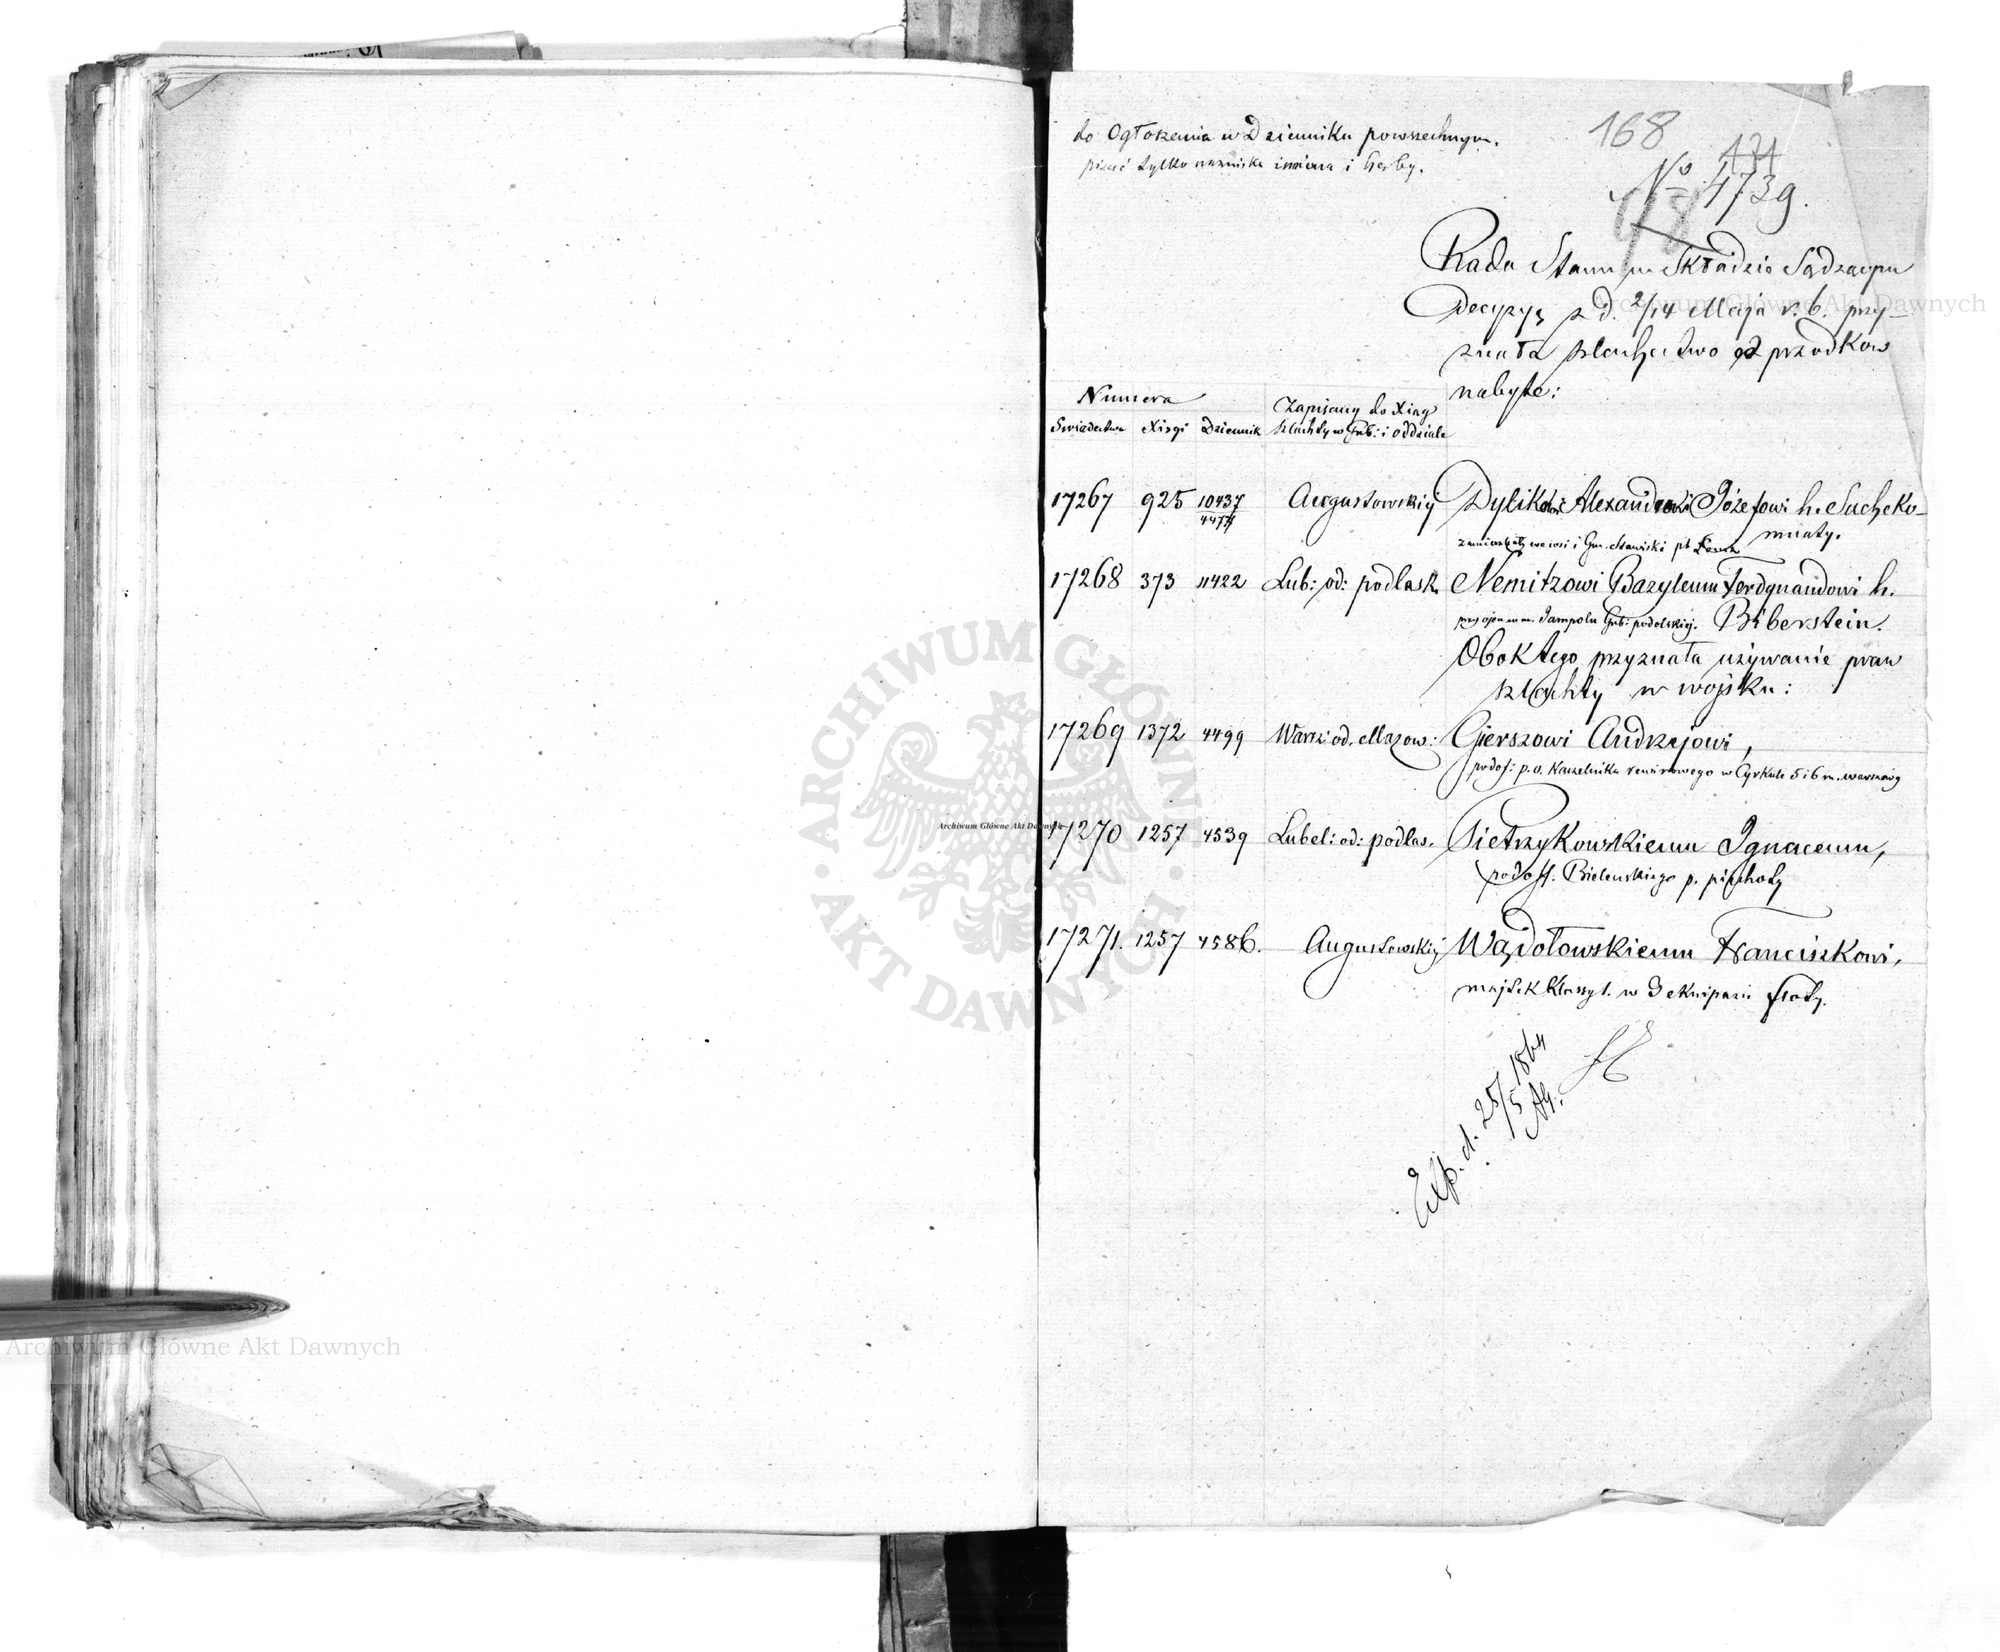 do Ogłoszenia w Dzienniku powszechnym.
pisać tylko nazwiska imiona i herby.
168
171
No 4739.
98
Rada Stanu w Składzie Sądzącym
Decyzyą z d. 2/14 Maja r. b. przy-
znała szlachectwo od przodków
nabyte:
Numera
Świadectwa Xięgi Dziennik
Zapisany do Xiąg
szlachty w Gub: i oddziale
17267 925 10437 Augustowskiej Alexandrowi Józefowi h. Suche ko-
4474
mnaty.
zamieszkały we wsi i Gm. Stawiski pt
17268 373 11422 Lub: od: podlask. Nemitzowi Bazylemu Ferdynandowi h.
w m. Jampolu Gub: podolskiej. Biberstein.
Obok tego przyznała używanie praw
szlachty w wojsku:
17269 1372 4499 Warsz: od. Mazow: Gierszowi Andrzejowi,
podof: p. o. Naczelnika rewirowego w Cyrkule 5 i 6 m. Warszawy
17270 1257 4539 Lubel: od: podlas. Pietrzykowskiemu Ignacemu,
podoff. Bielewskiego p. piechoty
17271. 1257 4586. Augustowskiej Wądołowskiemu Franciszkowi,
majtek klassy 1. w 3 ekwipażu floty.
Exp. d. 25/5 1864
Archiwum Główne Akt Dawnych
Archiwum Główne Akt Dawnych
Archiwum Główne Akt Dawnych
ARCHIWUM GŁÓWNE
AKT DAWNYCH